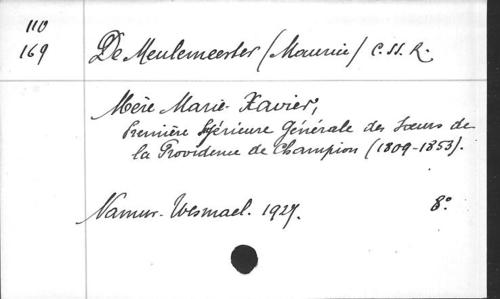 110
169 De Meulemeester (Maurice) C. SS. R.
Mère Marie-Xavier,
Première Supérieure Générale des Soeurs de
la Providence de Champion (1809-1853).
Namur. Wesmael. 1927. 8°